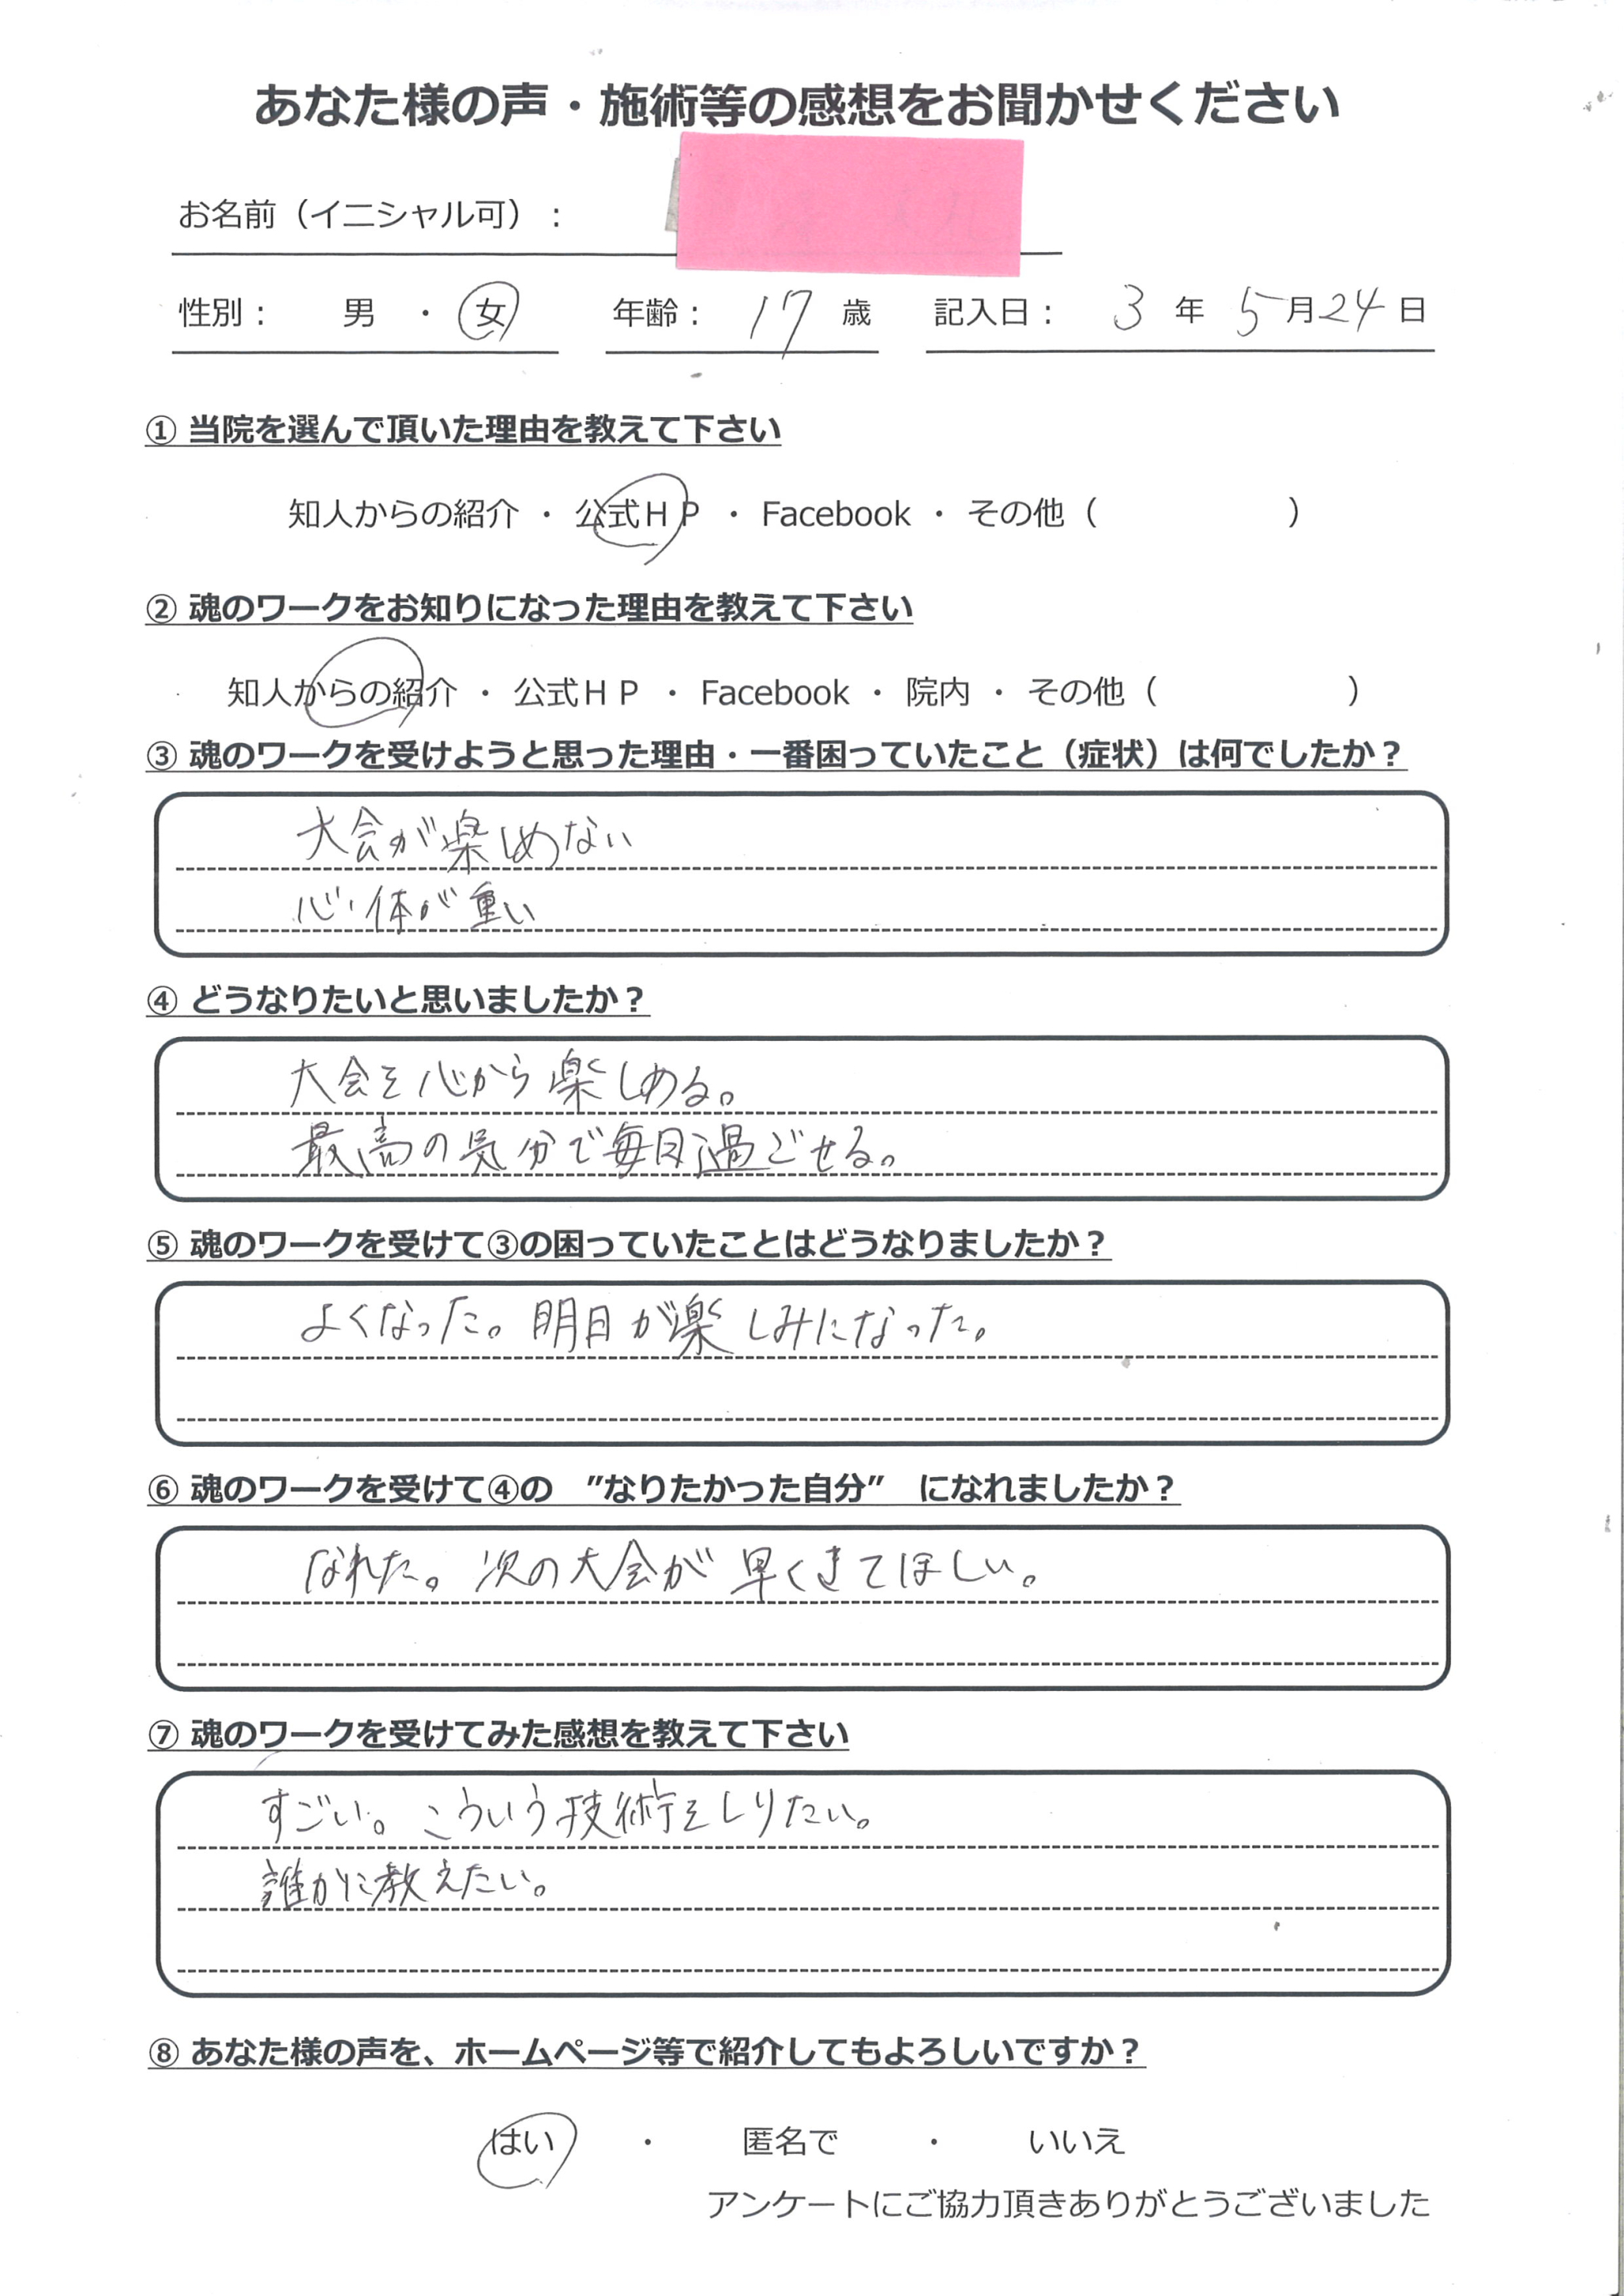 あなた様の声・施術等の感想をお聞かせください
お名前（イニシャル可）：
性別： 男 ・ 女 年齢： 17 歳 記入日： 3 年 5 月 24 日
① 当院を選んで頂いた理由を教えて下さい
知人からの紹介 ・ 公式ＨＰ ・ Facebook ・ その他（ ）
② 魂のワークをお知りになった理由を教えて下さい
知人からの紹介 ・ 公式ＨＰ ・ Facebook ・ 院内 ・ その他（ ）
③ 魂のワークを受けようと思った理由・一番困っていたこと（症状）は何でしたか？
大会が楽しめない
心・体が重い
④ どうなりたいと思いましたか？
大会を心から楽しめる。
最高の気分で毎日過ごせる。
⑤ 魂のワークを受けて③の困っていたことはどうなりましたか？
よくなった。明日が楽しみになった。
⑥ 魂のワークを受けて④の ”なりたかった自分” になれましたか？
なれた。次の大会が早くきてほしい。
⑦ 魂のワークを受けてみた感想を教えて下さい
すごい。こういう技術をしりたい。
誰かに教えたい。
⑧ あなた様の声を、ホームページ等で紹介してもよろしいですか？
はい ・ 匿名で ・ いいえ
アンケートにご協力頂きありがとうございました